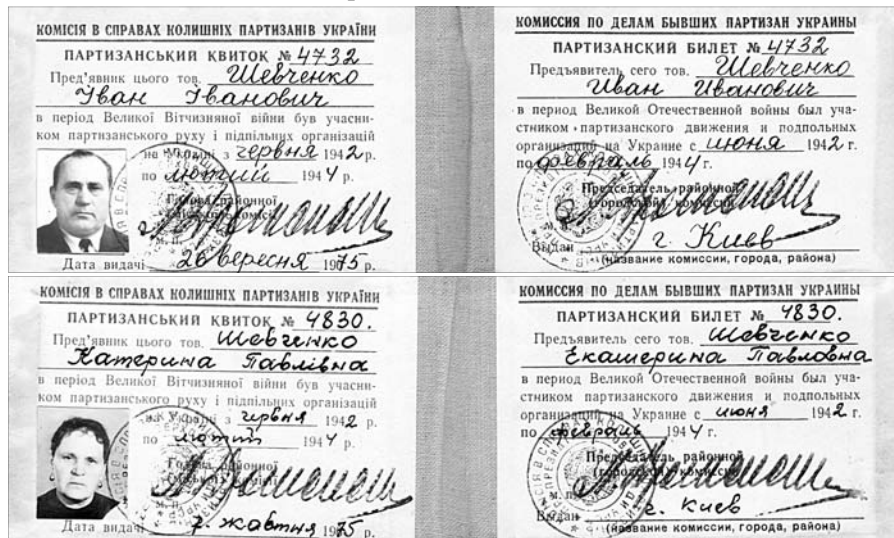 КОМІСІЯ В СПРАВАХ КОЛИШНІХ ПАРТИЗАНІВ УКРАЇНИ
ПАРТИЗАНСЬКИЙ КВИТОК № 4732
Пред'явник цього тов. Шевченко
Іван Іванович
в період Великої Вітчизняної війни був учасни-
ком партизанського руху і підпільних організацій
на Україні з червня 1942 р.
по лютий 1944 р.
Голова районної
М. П.
Дата видачі 26 вересня 1975 р.
КОМИССИЯ ПО ДЕЛАМ БЫВШИХ ПАРТИЗАН УКРАИНЫ
ПАРТИЗАНСКИЙ БИЛЕТ № 4732
Предъявитель сего тов. Шевченко
Иван Иванович
в период Великой Отечественной войны был уча-
стником партизанского движения и подпольных
организаций на Украине с июня 1942 г.
по февраль 1944 г.
Председатель районной
(городской) комиссии
М. П.
Выдан г. Киев
(название комиссии, города, района)
КОМІСІЯ В СПРАВАХ КОЛИШНІХ ПАРТИЗАНІВ УКРАЇНИ
ПАРТИЗАНСЬКИЙ КВИТОК № 4830.
Пред'явник цього тов. Шевченко
Катерина Павлівна
в період Великої Вітчизняної війни був учасни-
ком партизанського руху і підпільних організацій
на Україні з червня 1942 р.
по лютий 1944 р.
Голова районної
(міської) комісії
М. П.
Дата видачі 7. жовтня 1975 р.
КОМИССИЯ ПО ДЕЛАМ БЫВШИХ ПАРТИЗАН УКРАИНЫ
ПАРТИЗАНСКИЙ БИЛЕТ № 4830.
Предъявитель сего тов. Шевченко
Екатерина Павловна
в период Великой Отечественной войны был уча-
стником партизанского движения и подпольных
организаций на Украине с июня 1942 г.
по февраль 1944 г.
Председатель районной
(городской) комиссии
М. П.
Выдан г. Киев
(название комиссии, города, района)